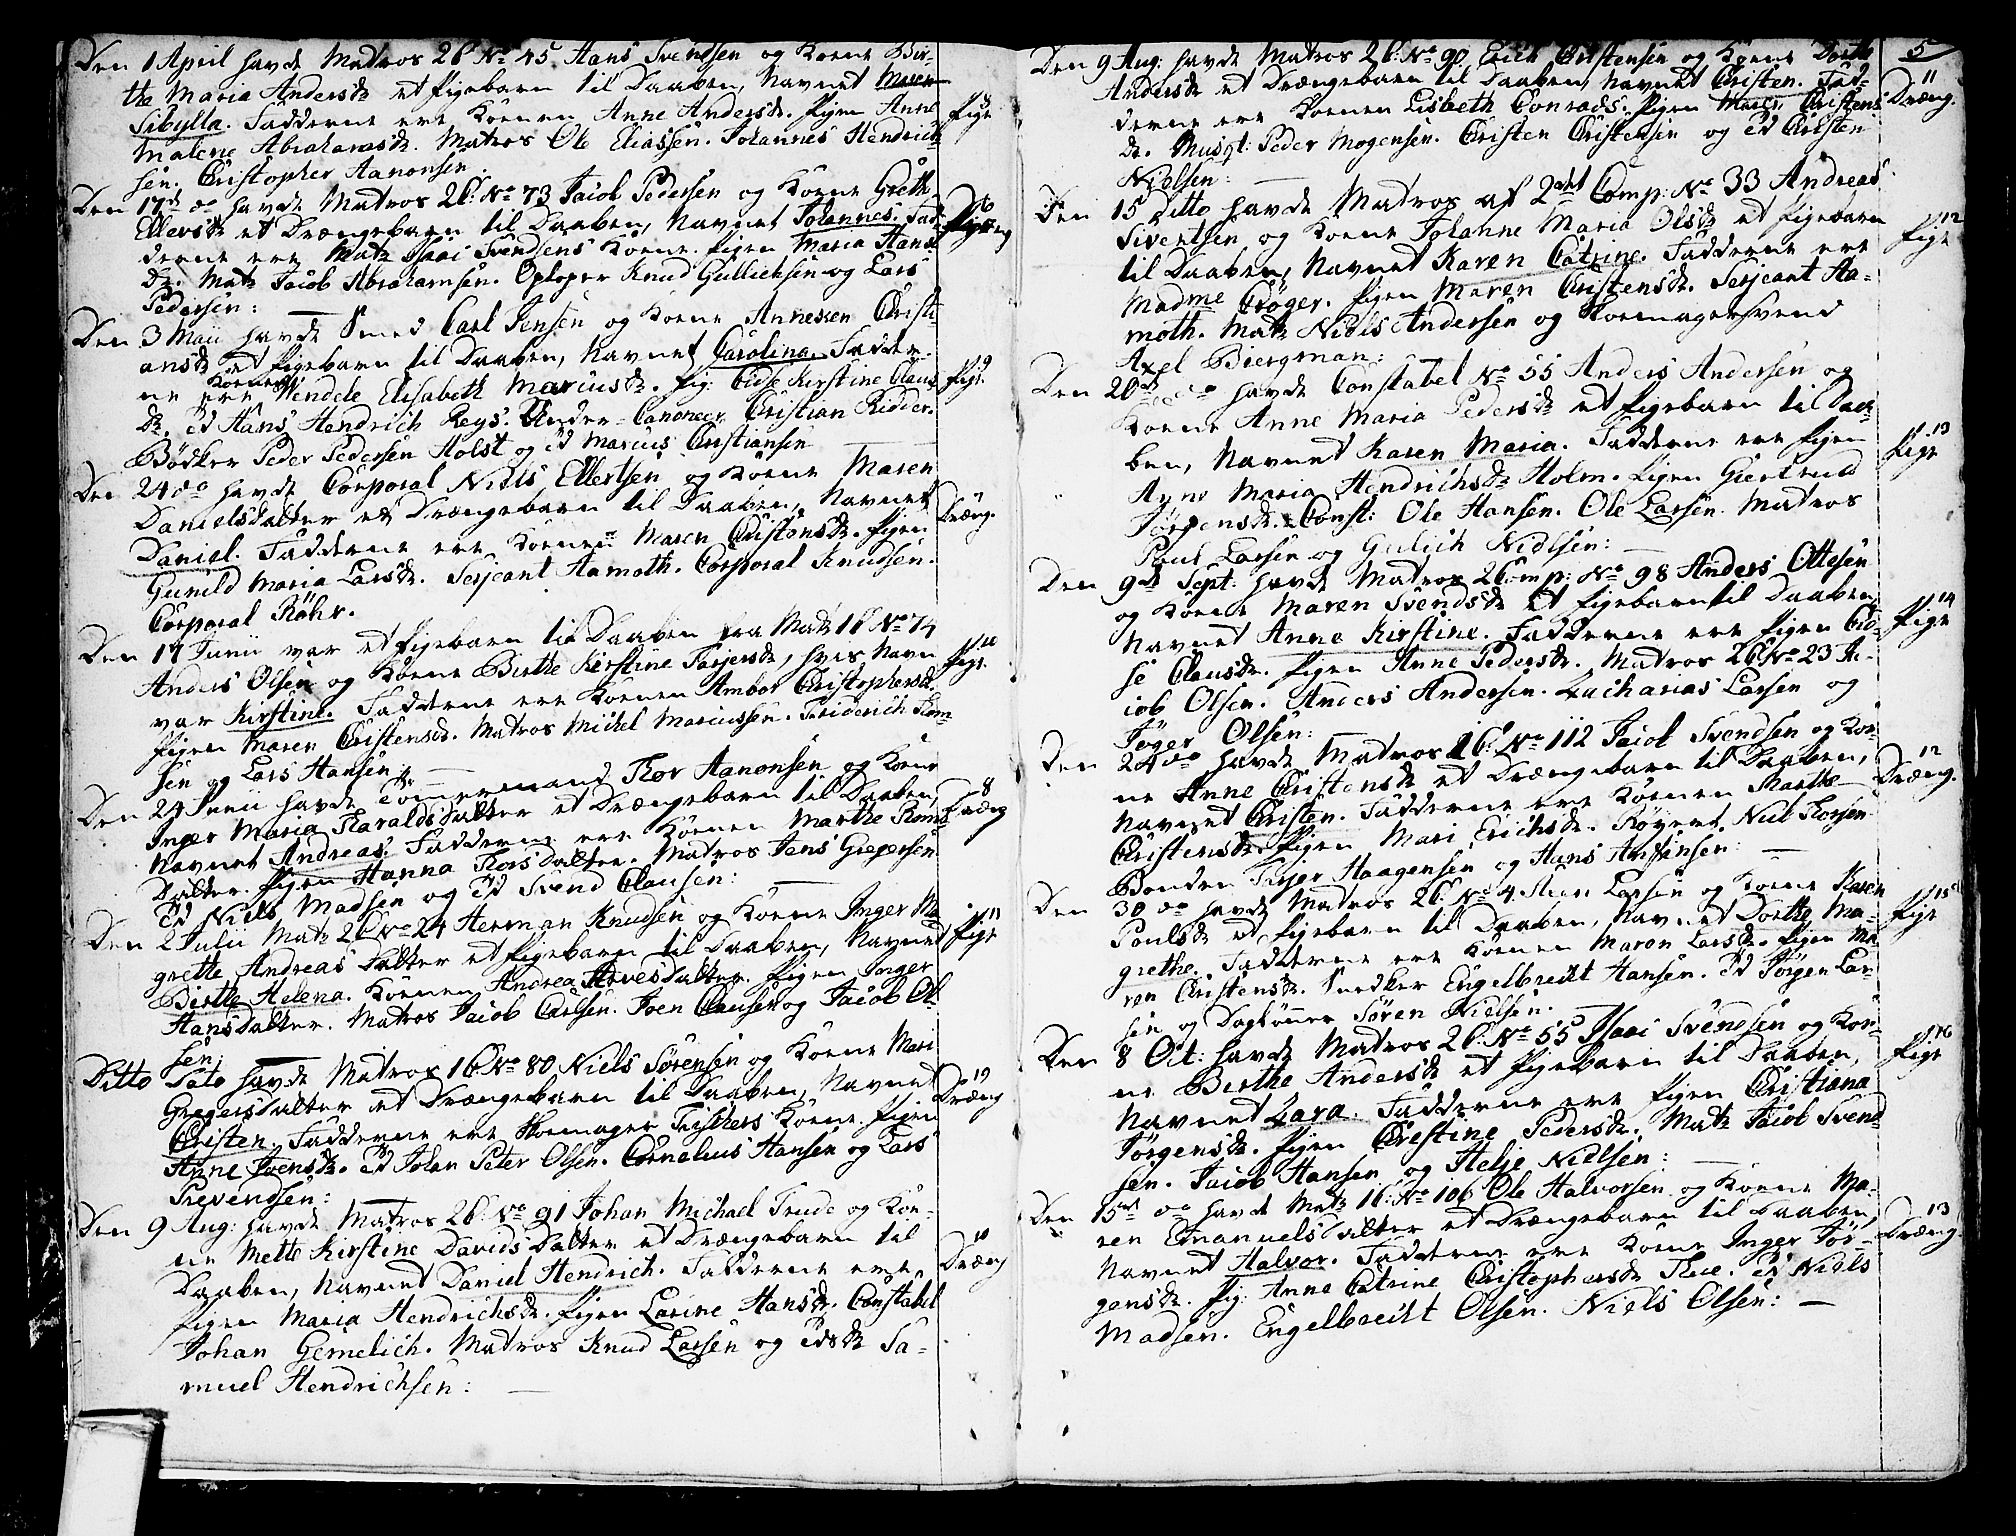 Den 1 April havde Matros 2 C No 45 Hans Svendsen og Kone Bir-
the Maria Andersdr et Pigebarn til Daaben, Navnet Maren
Sibylla. Fadderne ere Konen Anne Andersdr. Pigen Anne
Pige
Malene Abrahamsdr. Matros Ole Eliassen. Johannes Hendrich
sen. Christopher Aanonsen
Den 17de do havde Matros 2 C: No 73 Jacob Pedersen og Kone Greth
Ellersdr et Drængebarn til Daaben, Navnet Johannes. Fad-
derne ere Matr Isaai Svendsens Kone. Pigen Maria Hans
Dr. Matr Jacob Abrahamsen. Oploper Knud Gullichsen og Lars
Pedersen:
Den 3 Maii havde Smed Carl Jensen og Kone Annessen Christi-
ansdr et Pigebarn til Daaben, Navnet Carolina. Fadder-
ne ere Konen Wendele Elisabeth Marcusdr. Pig: Cidse Kirstine Claus
9 Pige
Dr. Ed Hans Hendrich Reys. Under-Canoneer Christian Ridder.
Bödker Peder Pedersen Holst og Ed Marcus Christiansen
Den 24 do havde Corporal Niels Ellertsen og Kone Maren
Danielsdatter et Drængebarn til Daaben, Navnet
Dræng.
Daniel. Fadderne ere Konen Maren Christensdr. Pigen
Gunild Maria Larsdr. Serjeant Aamoth. Corporal Knudsen.
Corporal Röhr.
Den 14 Junii var et Pigebarn til Daaben fra Matr 1 C No 74
Anders Olsen og Kone Birthe Kirstine Tarjersdr, hvis Navn
10 Pige
var Kirstine. Fadderne ere Konen Ambor Christophersdr.
Pigen Maren Christensdr. Matros Michel Marcussen. Friderich Thom-
sen og Lars Hansen:
Den 24 Junii havde Tömermand Thor Aanonsen og Kone
Inger Maria Haraldsdatter et Drængebarn til Daaben,
8 Dræng
Navnet Andreas. Fadderne ere Konen Marthe Thoms
Datter. Pigen Hanna Thorsdatter. Matros Jens Gregersen
Ed Niels Madsen og Ed Svend Clausen:
Den 2 Julii Matr 2 C No 24 Herman Knudsen og Kone Inger Ma-
grethe Andreasdatter et Pigebarn til Daaben, Navnet
11 Pige
Birthe Helena. Konen Andrea Arvesdatter. Pigen Inger
Hansdatter. Matros Jacob Carlsen. Joen Clausen og Jacob Ol-
sen
Ditto Dato havde Matros 1 C: No 80 Niels Sörensen og Kone Mari
Gregersdatter et Drængebarn til Daaben, Navnet
Dræng
Christen. Fadderne ere Skomager Fischers Kone. Pigen
Anne Joensdr. Ed Johan Peter Olsen. Cornelius Hansen og Lars
Trevendsen:
Den 9 Aug: havde Matros 2 C: No 91 Johan Michael Trude og Kon-
ne Mette Kirstine Davidsdatter et Drængebarn til
10 Dræng
Daaben, Navnet Daniel Hendrich. Fadderne ere
Pigen Maria Hendrichsdr. Pigen Larine Hansdr. Constabel
Johan Gemelich. Matros Knud Larsen og Sa-
muel Hendrichsen:
5
Den 9 Aug: havde Matros 2 C: No 90 Erich Christensen og Kone Dorthe
Andersdr et Drængebarn til Daaben, Navnet Christen. Fad-
11 Dræng.
derne ere Konen Lisbeth Conrads. Pigen Maren Christens
Dr. Musqt: Peder Mogensen. Christen Christensen og Ed Christen
Nielsen:
Den 15 Ditto havde Matros af 2det Comp: No 33 Andreas
Sivertsen og Kone Johanne Maria Olsdr et Pigebarn
12 Pige
til Daaben, Navnet Karen Catrine. Fadderne ere
Madme Cröger. Pigen Maren Christensdr. Serjeant Aa-
moth. Matr Niels Andersen og Skomagersvend
Axel Biergman:
Den 20de do havde Constabel No 55 Anders Andersen og
Kone Anne Maria Pedersdr et Pigebarn til Daa-
13 Pige
ben, Navnet Karen Maria. Fadderne ere Pigen
Anne Maria Hendrichsdr Holm. Pigen Giertrud
Jörgensdr. Const: Ole Hansen. Ole Larsen. Matros
Poul Larsen og Gulich Nielsen:
Den 9de Sept: havde Matros 2 Comp: No 98 Anders Ottesen
og Kone Maren Svendsdr et Pigebarn til Daaben,
14 Pige
Navnet Anne Kirstine. Fadderne ere Pigen Cid-
se Clausdr. Pigen Anne Pedersdr. Matros 2 C: No 23 Ja-
cob Olsen. Anders Andersen. Zacharias Larsen og
Jöger Olsen:
Den 24 do havde Matros 1 C: No 112 Jacob Svendsen og Kon-
ne Anne Christensdr et Drængebarn til Daaben,
12 Dræng.
Navnet Christen. Fadderne ere Konen Marthe
Christensdr. Pigen Mari Erichsdr. Röyert Niel Thorsen
Bonden Tarjer Haagensen og Hans Hansen:
Den 30 do havde Matros 2 C: No 4 Steen Larsen og Kone Karen
Poulsdr et Pigebarn til Daaben, Navnet Dorthe Ma-
15 Pige
grethe. Fadderne ere Konen Maren Larsdr. Pigen Ma
ren Christensdr. Snedker Engelbrecht Hansen. Ed Jörgen Lar-
sen og Daglönner Sören Nielsen.
Den 8 Oct: havde Matros 2 C: No 55 Isaai Svendsen og Kon-
ne Berthe Andersdr et Pigebarn til Daaben,
16 Pige
Navnet Zara. Fadderne ere Pigen Christiana
Jörgensdr. Pigen Chrestine Pedersdr. Matr Jacob Svend
sen. Jacob Hansen og Helje Nielsen:
Den 15de do havde Matr 1 C: No 106 Ole Halvorsen og Kone Ma-
ren Emanuelsdatter et Drængebarn til Daaben,
13 Dræng.
Navnet Halvor. Fadderne ere Kone Inger Jör-
gensdr. Pig: Anne Catrine Christophersdr Thue. Ed Niels
Madsen. Engelbrecht Olsen. Niels Olsen: